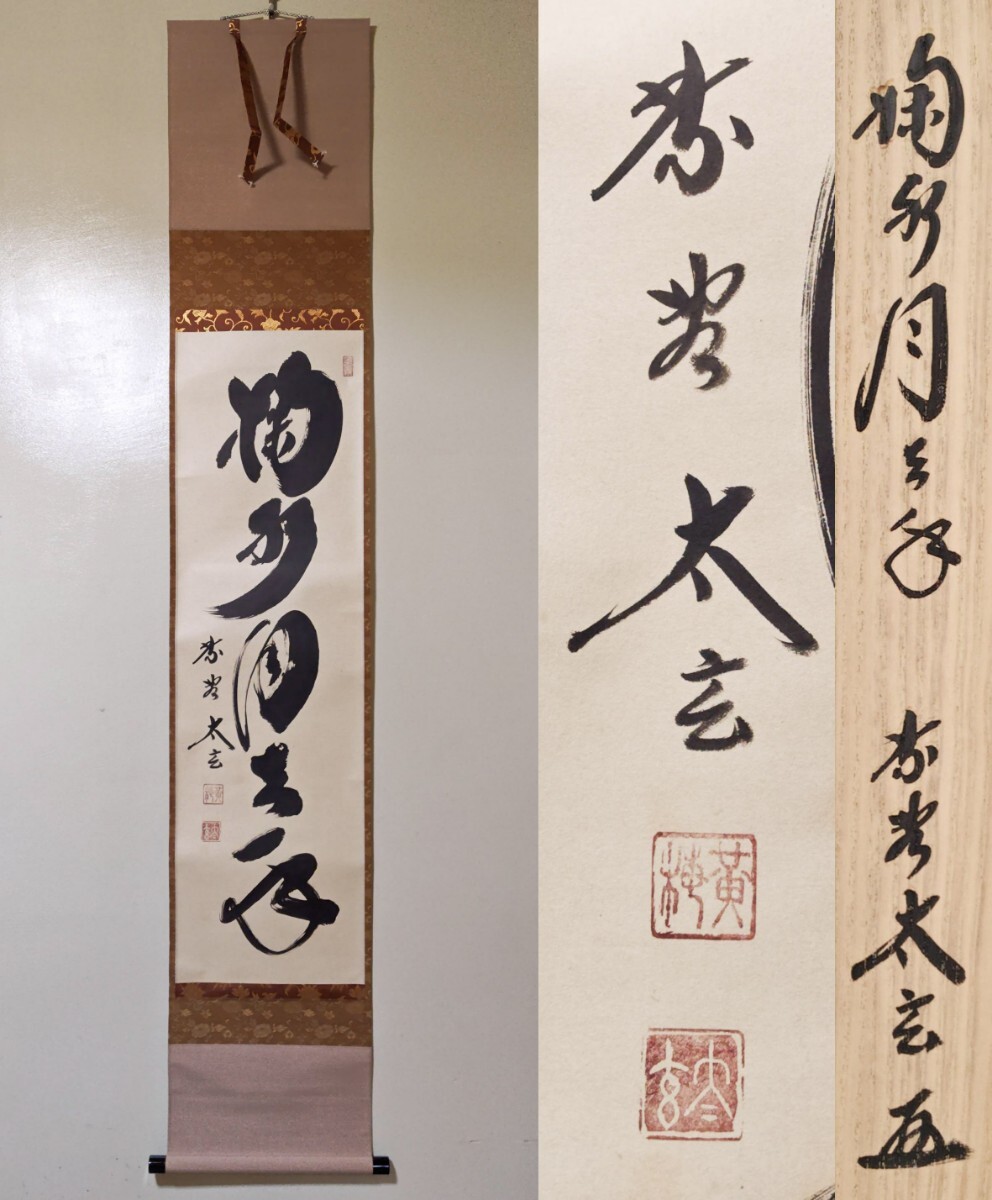 掬水月在手
紫野 太玄
黄梅
太玄
紫野 太玄
黄梅
太玄
掬水月在手 紫野 太玄